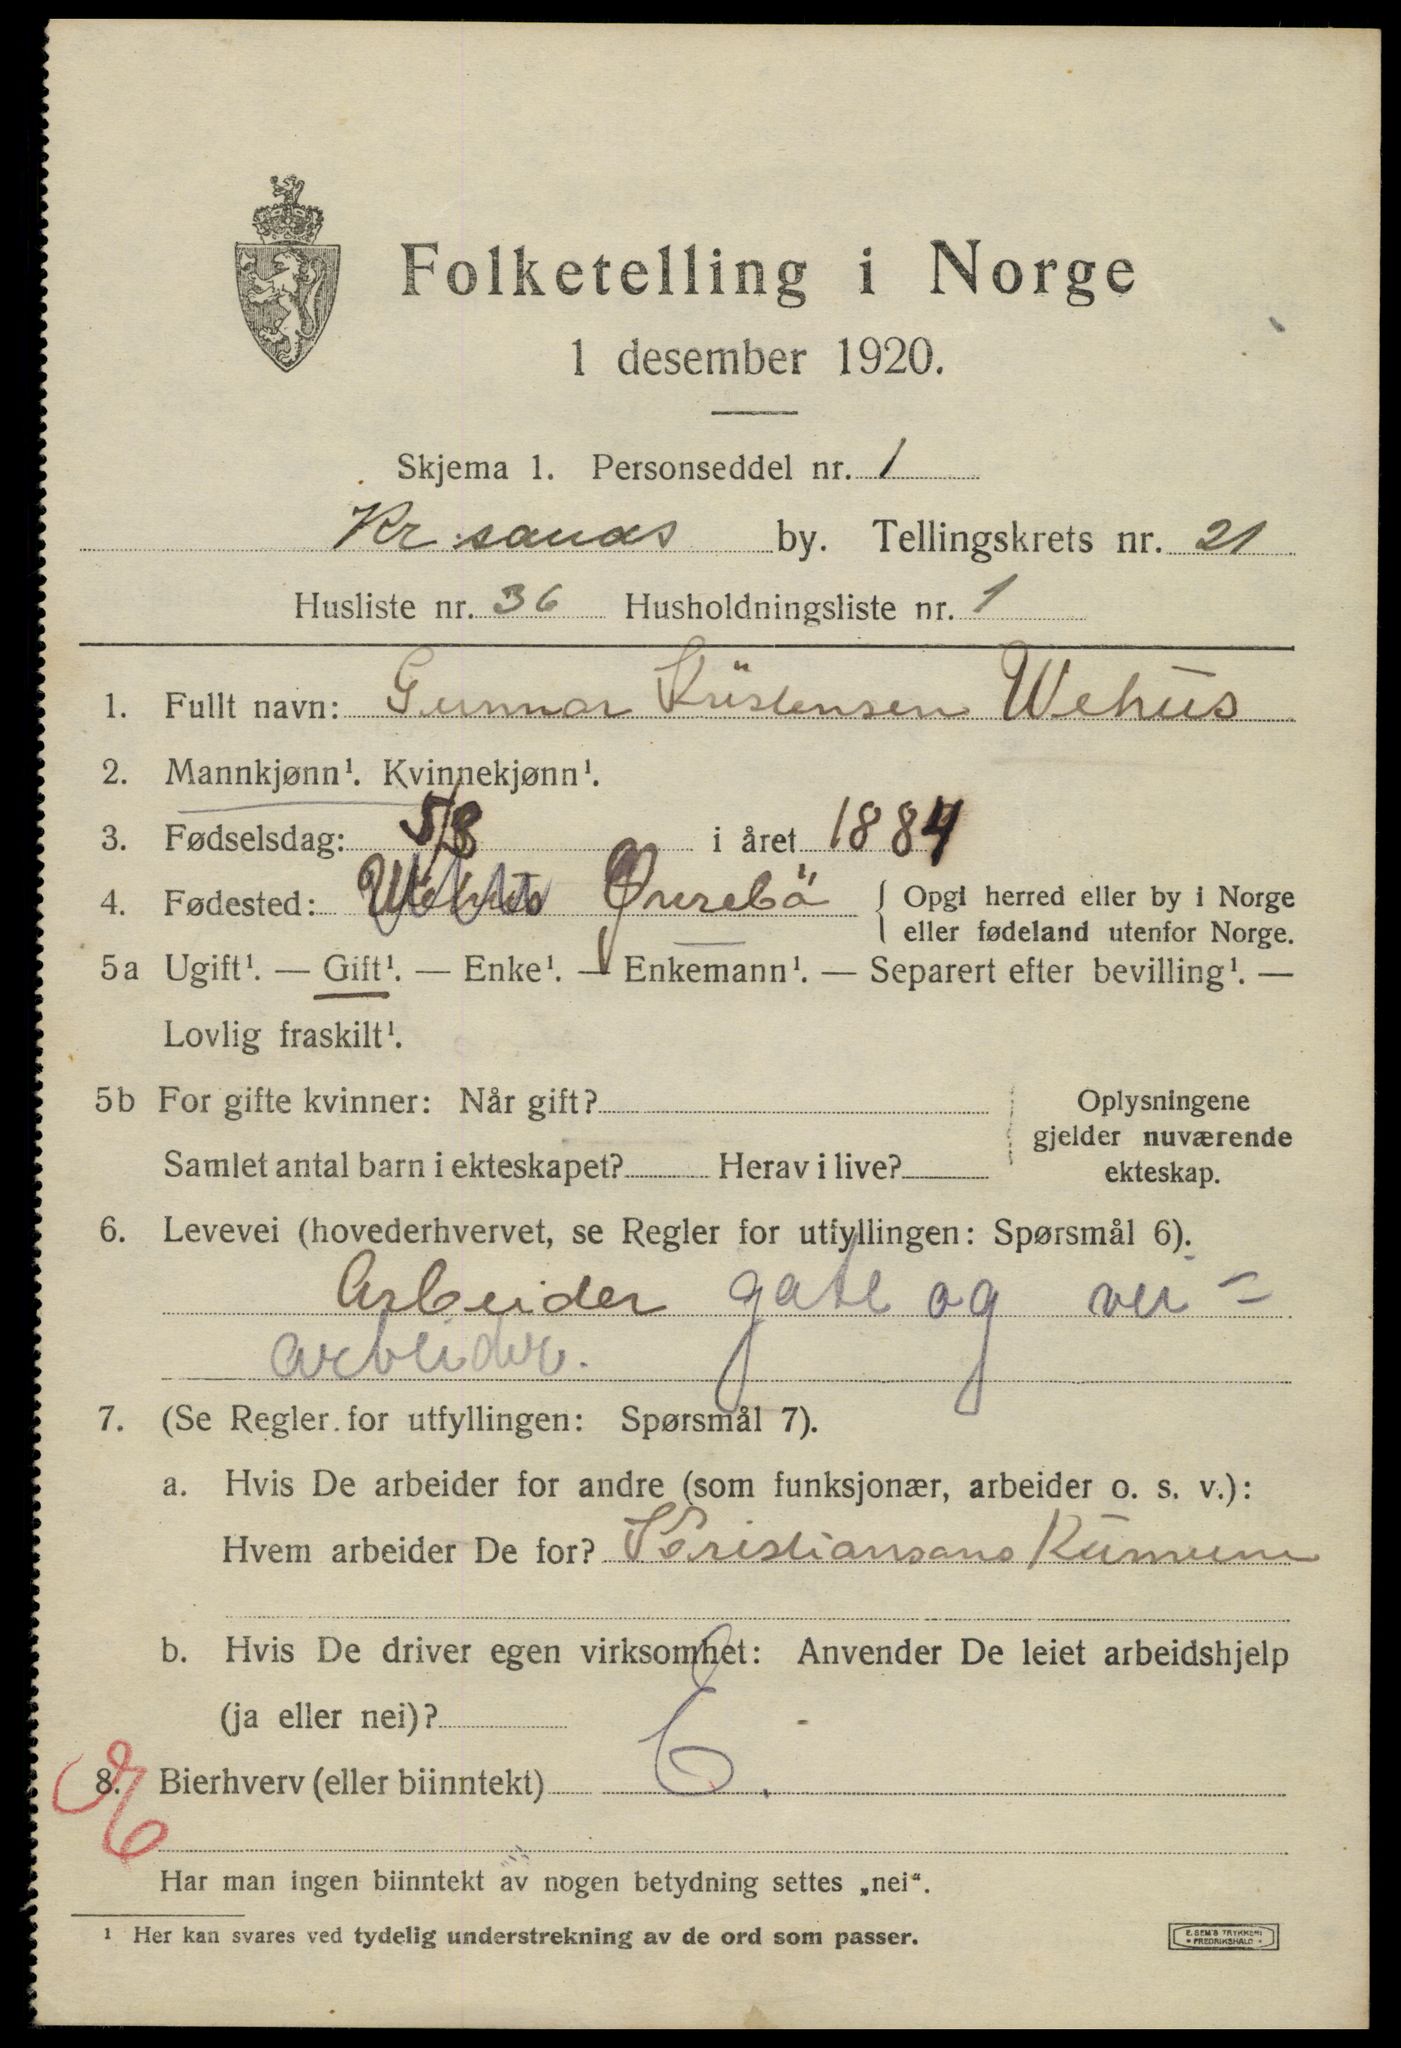 Folketelling i Norge
1 desember 1920.
Skjema 1. Personseddel nr. 1
Kr.sands by. Tellingskrets nr. 21
Husliste nr. 36 Husholdningsliste nr. 1
1. Fullt navn: Gunnar Kristensen Wehus
2. Mannkjønn¹. Kvinnekjønn¹.
3. Fødselsdag: 5/8 i året 1884
4. Fødested: Wehus Øvrebö { Opgi herred eller by i Norge
eller fødeland utenfor Norge.
5a Ugift¹. — Gift¹. — Enke¹. — Enkemann¹. — Separert efter bevilling¹. —
Lovlig fraskilt¹.
5b For gifte kvinner: Når gift? Oplysningene
gjelder nuværende
Samlet antal barn i ekteskapet? Herav i live? ekteskap.
6. Levevei (hovederhvervet, se Regler for utfyllingen: Spørsmål 6).
Arbeider gate og vei-
arbeider.
7. (Se Regler for utfyllingen: Spørsmål 7).
a. Hvis De arbeider for andre (som funksjonær, arbeider o. s. v.):
Hvem arbeider De for? Kristiansans Kumune
b. Hvis De driver egen virksomhet: Anvender De leiet arbeidshjelp
(ja eller nei)?
8. Bierhverv (eller biinntekt)
Har man ingen biinntekt av nogen betydning settes „nei“.
¹ Her kan svares ved tydelig understrekning av de ord som passer.
E. SEM'S TRYKKERI
• FREDRIKSHALD •